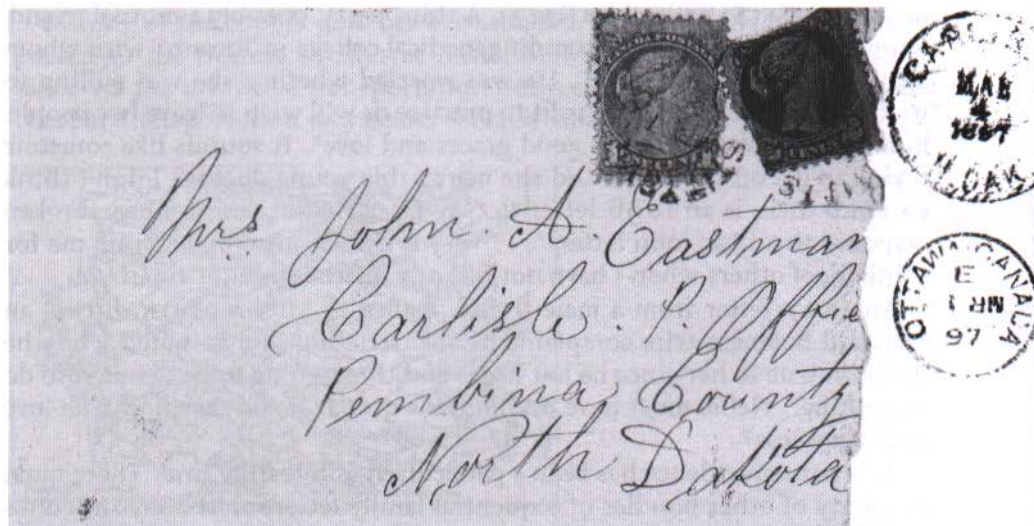 Mrs. John A. Eastman
Carlisle P. Office
Pembina County
North Dakota
MAR
4
1897
DAK
OTTAWA CANADA
E
1
97